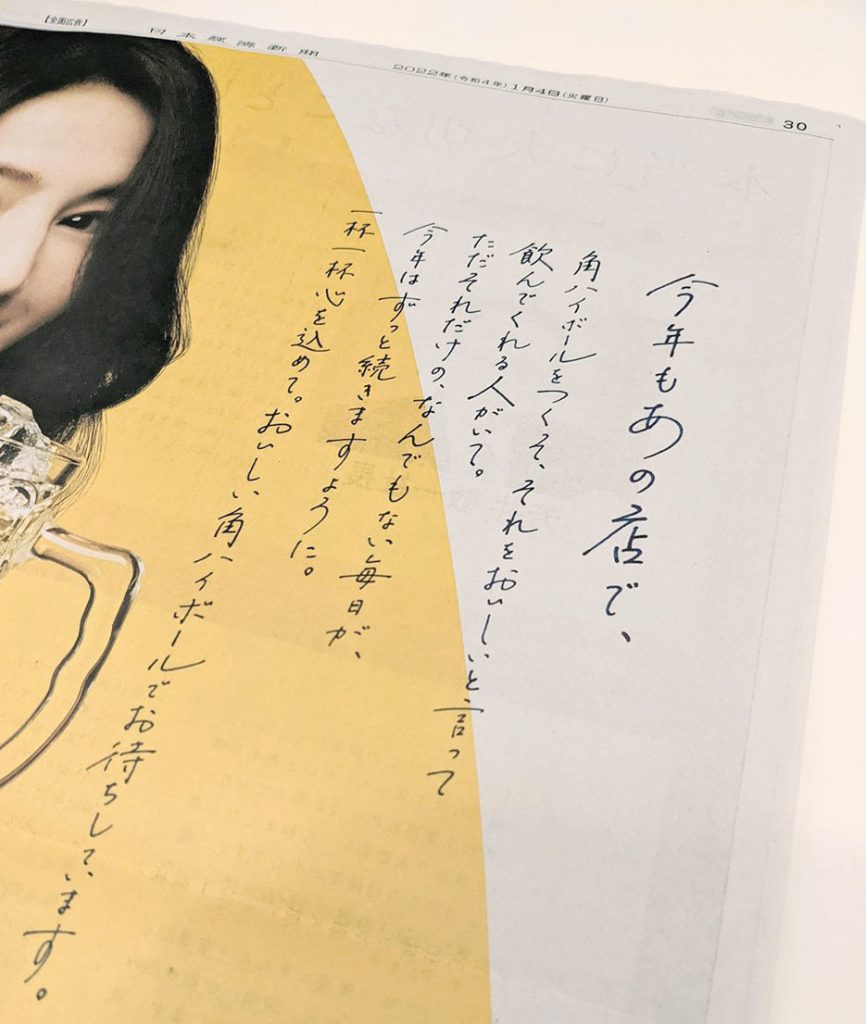 【全面広告】
日本経済新聞
2022年(令和4年)1月4日(火曜日)
30
今年もあの店で、
角ハイボールをつくって、それをおいしいと言って
飲んでくれる人がいて。
ただそれだけの、なんでもない毎日が、
今年はずっと続きますように。
一杯一杯心を込めて。おいしい角ハイボールでお待ちしています。